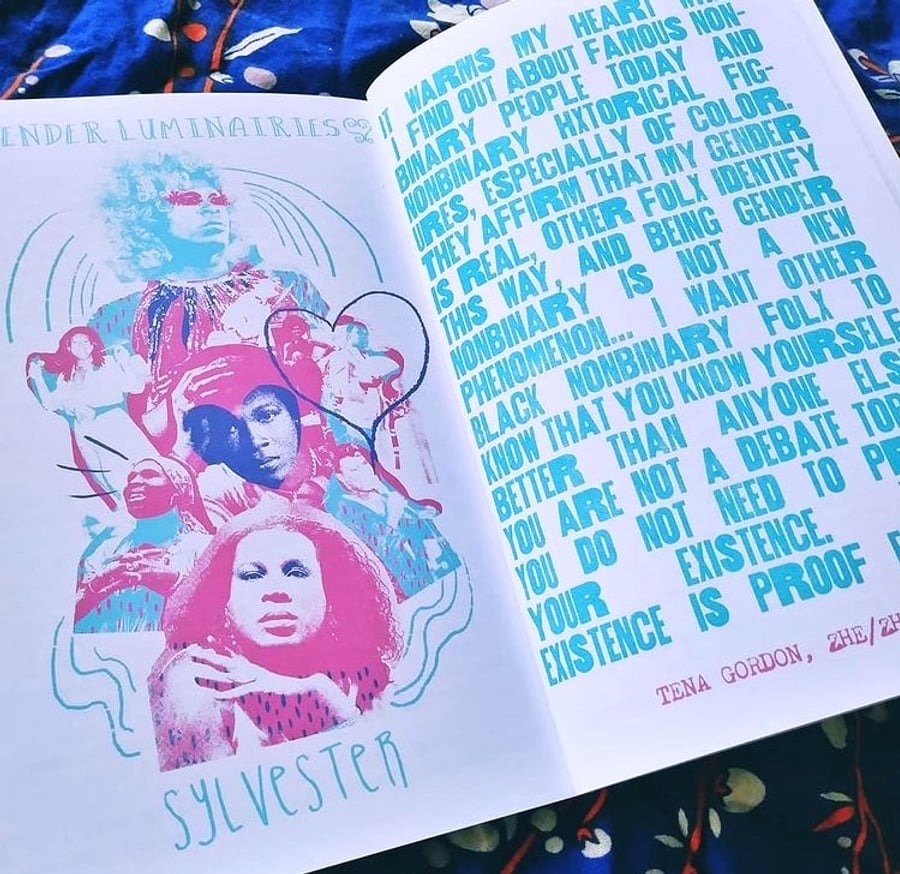 ENDER LUMINAIRIES
SYLVESTER
IT WARMS MY HEART
I FIND OUT ABOUT FAMOUS NON-
BINARY PEOPLE TODAY AND
NONBINARY HXTORICAL FIG-
URES, ESPECIALLY OF COLOR.
THEY AFFIRM THAT MY GENDER
IS REAL, OTHER FOLX IDENTIFY
THIS WAY, AND BEING GENDER
NONBINARY IS NOT A NEW
PHENOMENON... I WANT OTHER
BLACK NONBINARY FOLX TO
KNOW THAT YOU KNOW YOURSELF
BETTER THAN ANYONE ELS
YOU ARE NOT A DEBATE TOP
YOU DO NOT NEED TO
YOUR EXISTENCE.
EXISTENCE IS PROOF
TENA GORDON, ZHE/ZH